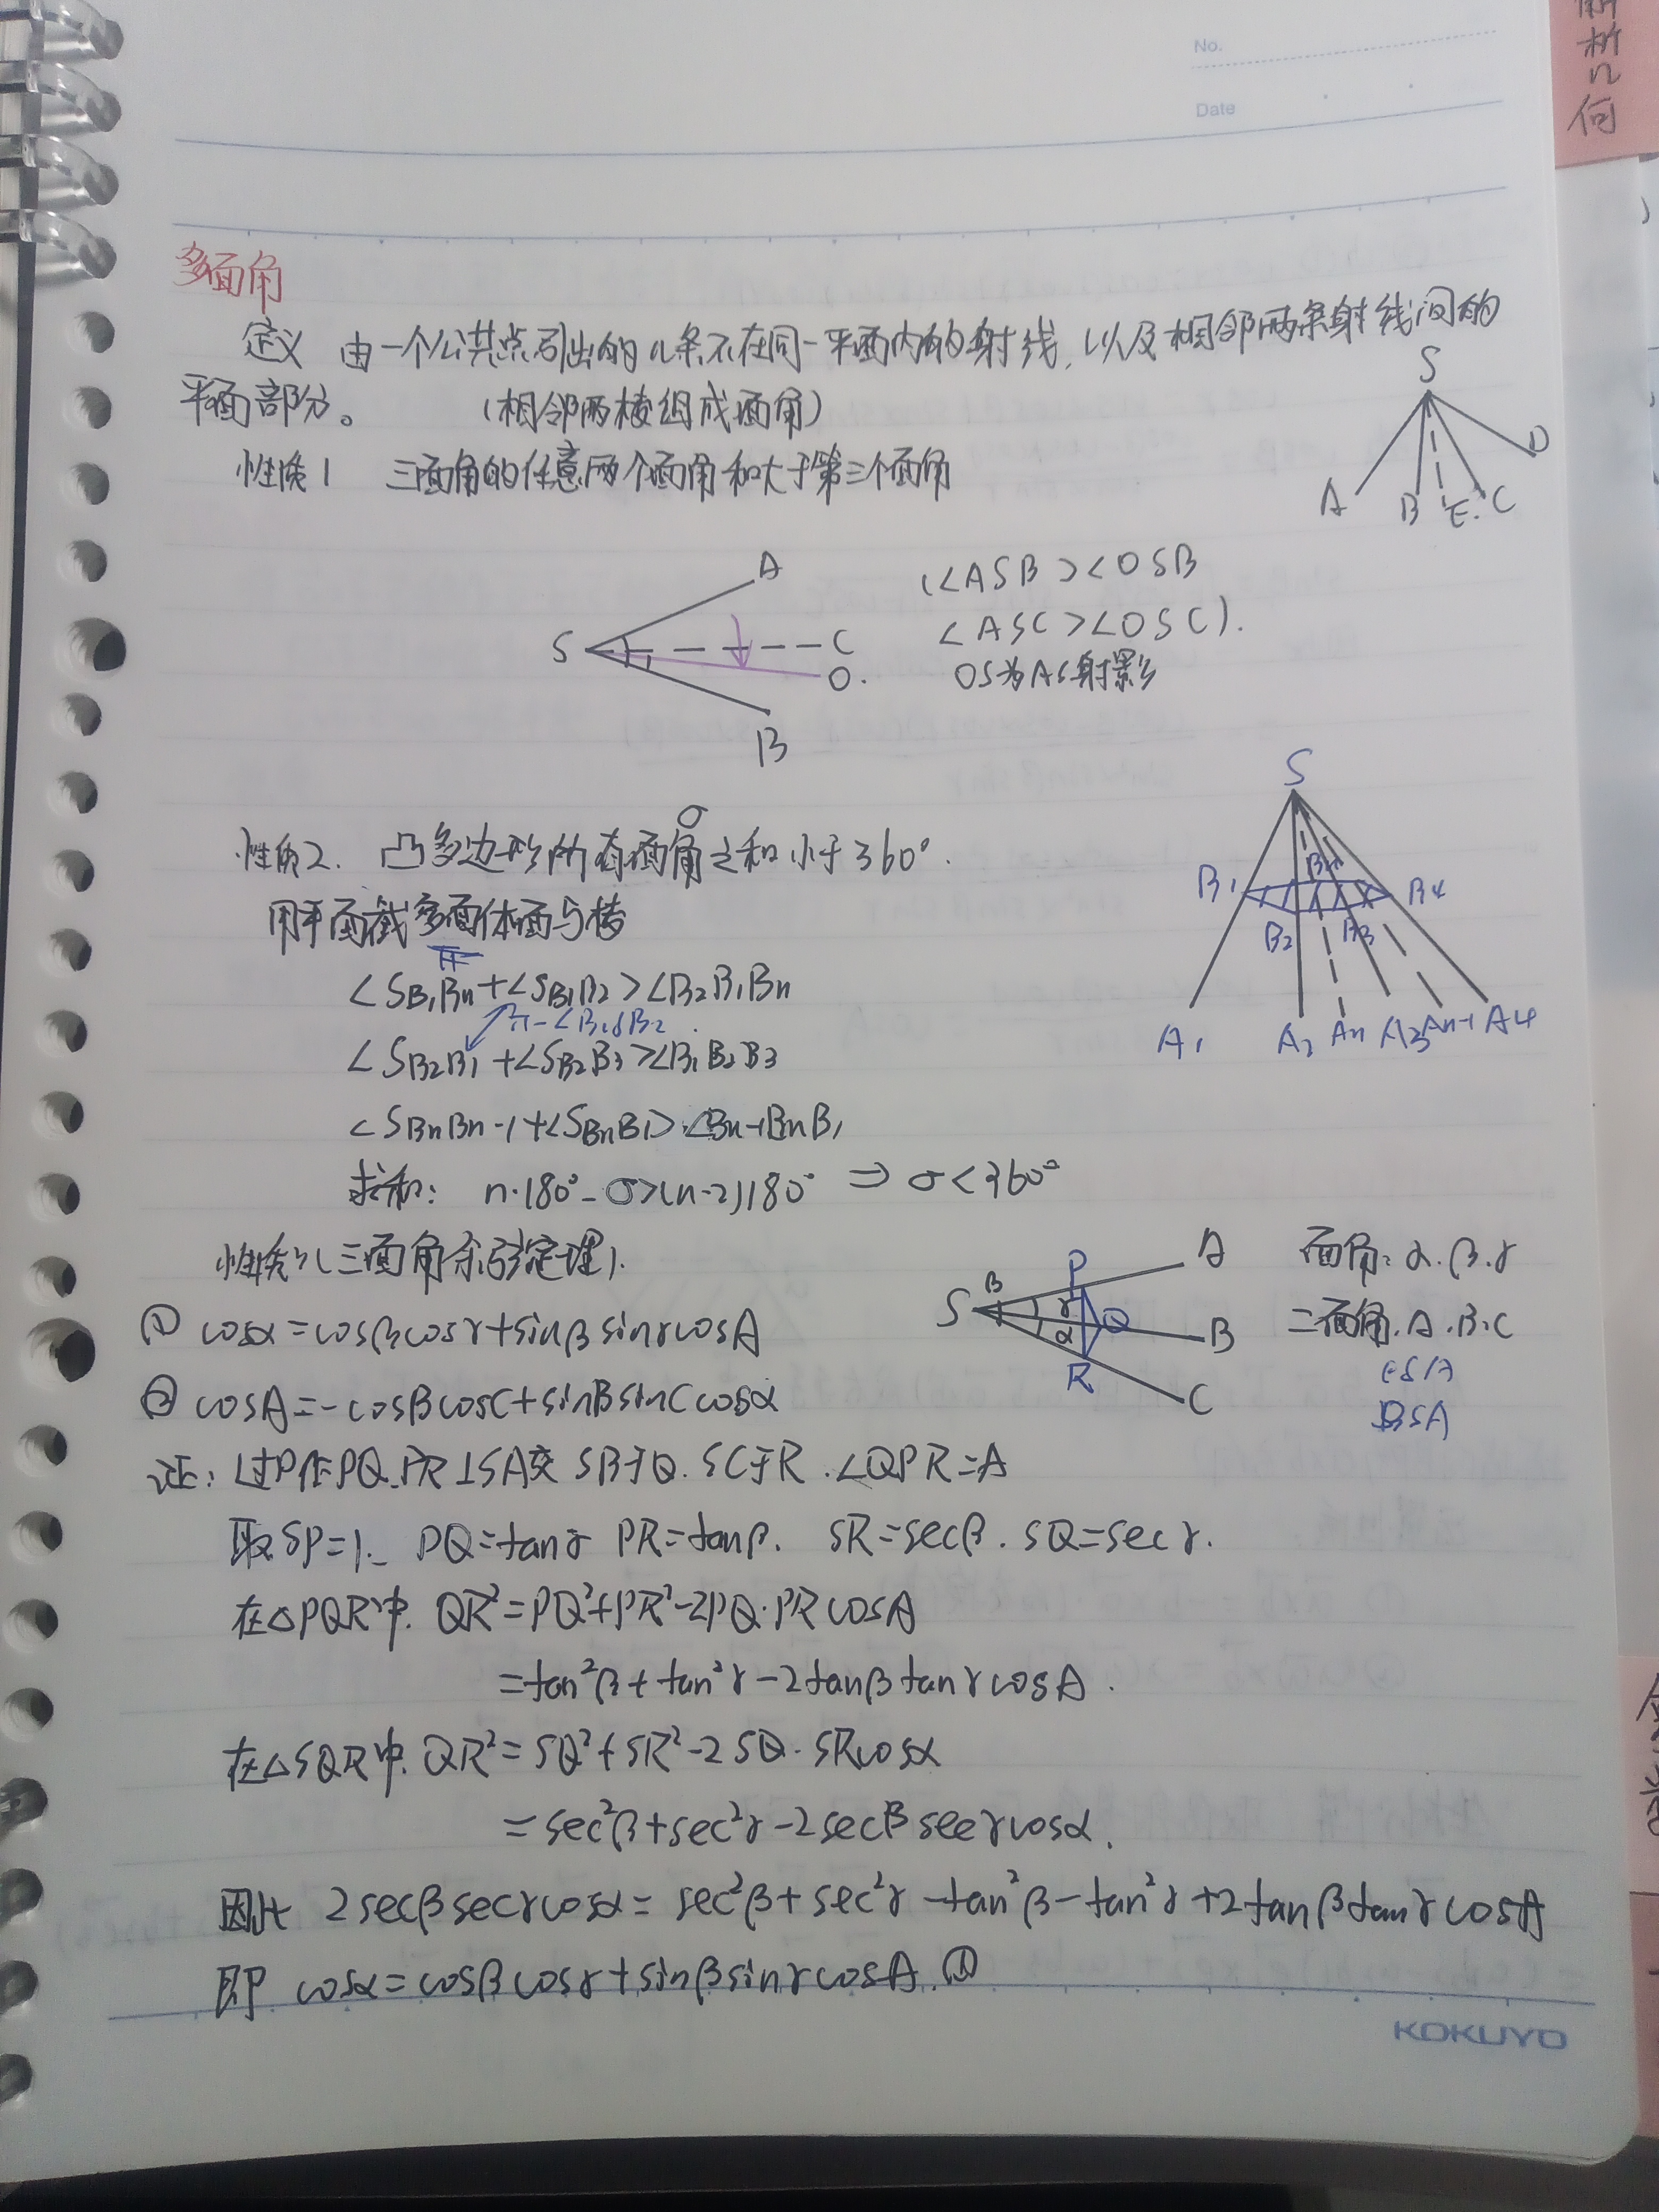 No.
Date
解析几何
多面角
定义 由一个公共点引出的n条不在同一平面内的射线,以及相邻两条射线间的
平面部分。 (相邻两棱组成面角)
S
A B E C D
性质1 三面角的任意两个面角和大于第三个面角
S A C O B
(<ASB><OSB
<ASC><OSC).
OS为AS射影
性质2. 凸多边形所有面角之和小于360°.
σ
用平面截多面体面与棱
S
B1 Bn B4
B2 B3
A1 A2 An A3 An-1 A4
<SB1Bn+<SB1B2><B2B1Bn
π-<B1SB2
<SB2B1+<SB2B3><B1B2B3
<SBnBn-1+<SBnB1><Bn-1BnB1
求和: n·180°-σ>(n-2)180° ⇒ σ<360°
性质3(三面角余弦定理).
① cosα=cosβcosγ+sinβsinγcosA
② cosA=-cosBcosC+sinBsinCcosα
S β P A
γ Q B
α R C
面角:α.β.γ
二面角.A.B.C
BSA
证:过P作PQ.PR⊥SA交SB于Q.SC于R.∠QPR=A
取SP=1. PQ=tanγ PR=tanβ. SR=secβ. SQ=secγ.
在△PQR中. QR²=PQ²+PR²-2PQ·PRcosA
=tan²β+tan²γ-2tanβtanγcosA.
在△SQR中. QR²=SQ²+SR²-2SQ·SRcosα
=sec²β+sec²γ-2secβsecγcosα.
因此 2secβsecγcosα=sec²β+sec²γ-tan²β-tan²γ+2tanβtanγcosA
即 cosα=cosβcosγ+sinβsinγcosA.①
KOKUYO